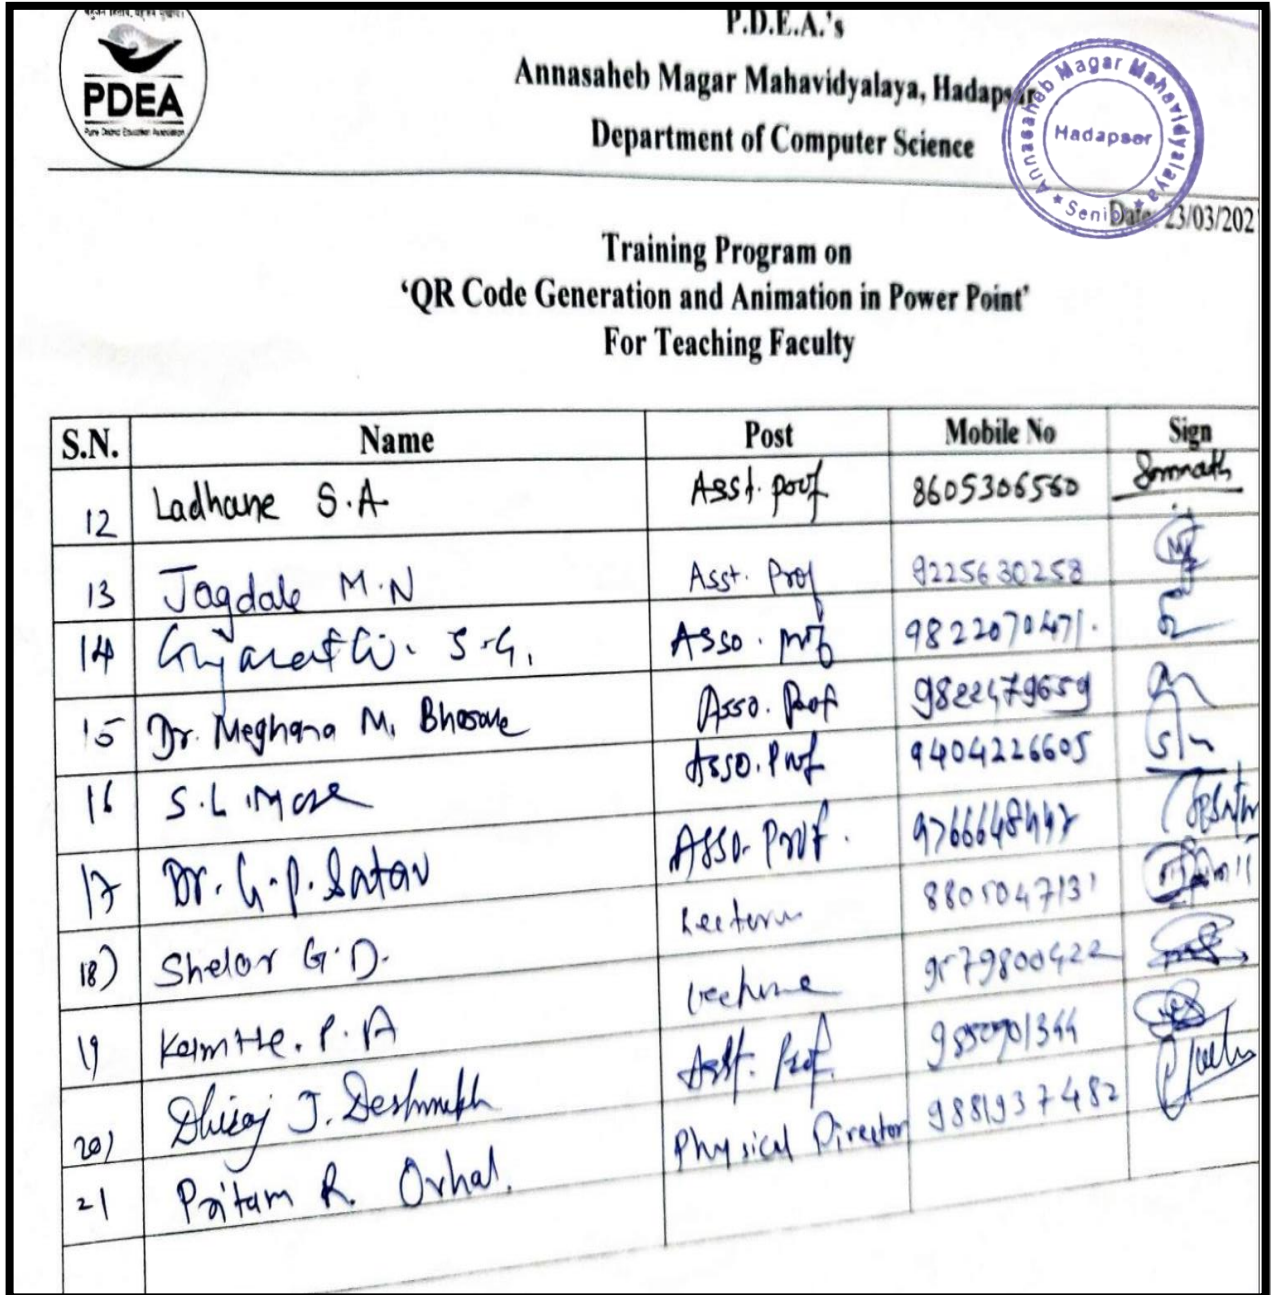 PDEA
Pune District Education Association
P.D.E.A.'s
Annasaheb Magar Mahavidyalaya, Hadapsar
Department of Computer Science
Annasaheb Magar Mahavidyalaya
Hadapsar
Date: 23/03/202
Training Program on
‘QR Code Generation and Animation in Power Point’
For Teaching Faculty
S.N. Name Post Mobile No Sign
12 Ladhane S.A Asst. prof 8605306560 Somnath
13 Jagdale M.N Asst. Prof 9225630258
14 S.G. Asso. prof 9822070471.
15 Dr. Meghana M. Bhosale Asso. Prof 9822479659
16 S.L. More Asso. Prof 9404226605
17 Dr. G.P. Satav Asso. Prof.
18) Shelar G.D. Lecturer 8805047131
19 Kamthe. P.A 9579800422
20) Dhiraj J. Deshmukh Asst. Prof.
21 Pritam R. Orhal. Physical Director 9881937482